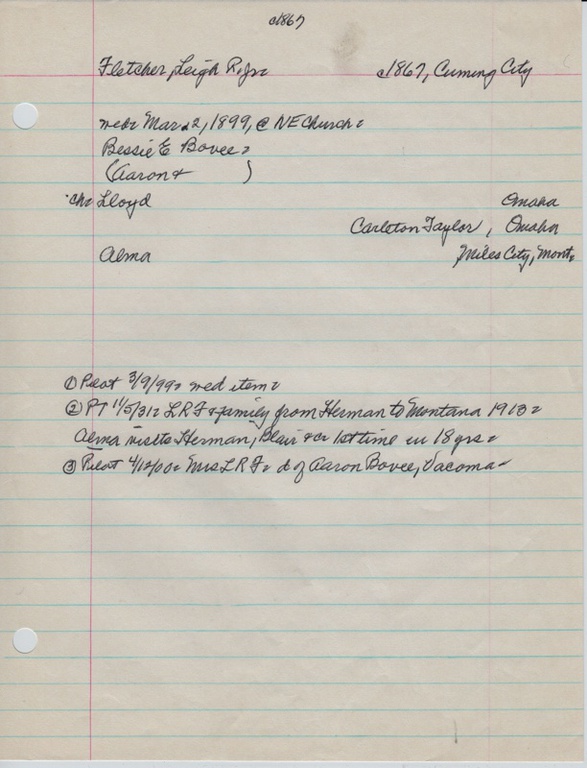 c1867
Fletcher, Leigh R, Jr= c1867, Cuming City
wed= Mar 2, 1899, @ NE Church=
Bessie E Bovee=
(Aaron & )
ch= Lloyd Omaha
Carleton Taylor, Omaha
Alma Miles City, Mont=
① Pilot 3/9/99= wed item=
② PT 11/5/31= LRF & family from Herman to Montana 1913=
Alma visits Herman, Blair &c 1st time in 18 yrs=
③ Pilot 4/12/00= Mrs LRF= d of Aaron Bovee, Vacoma=